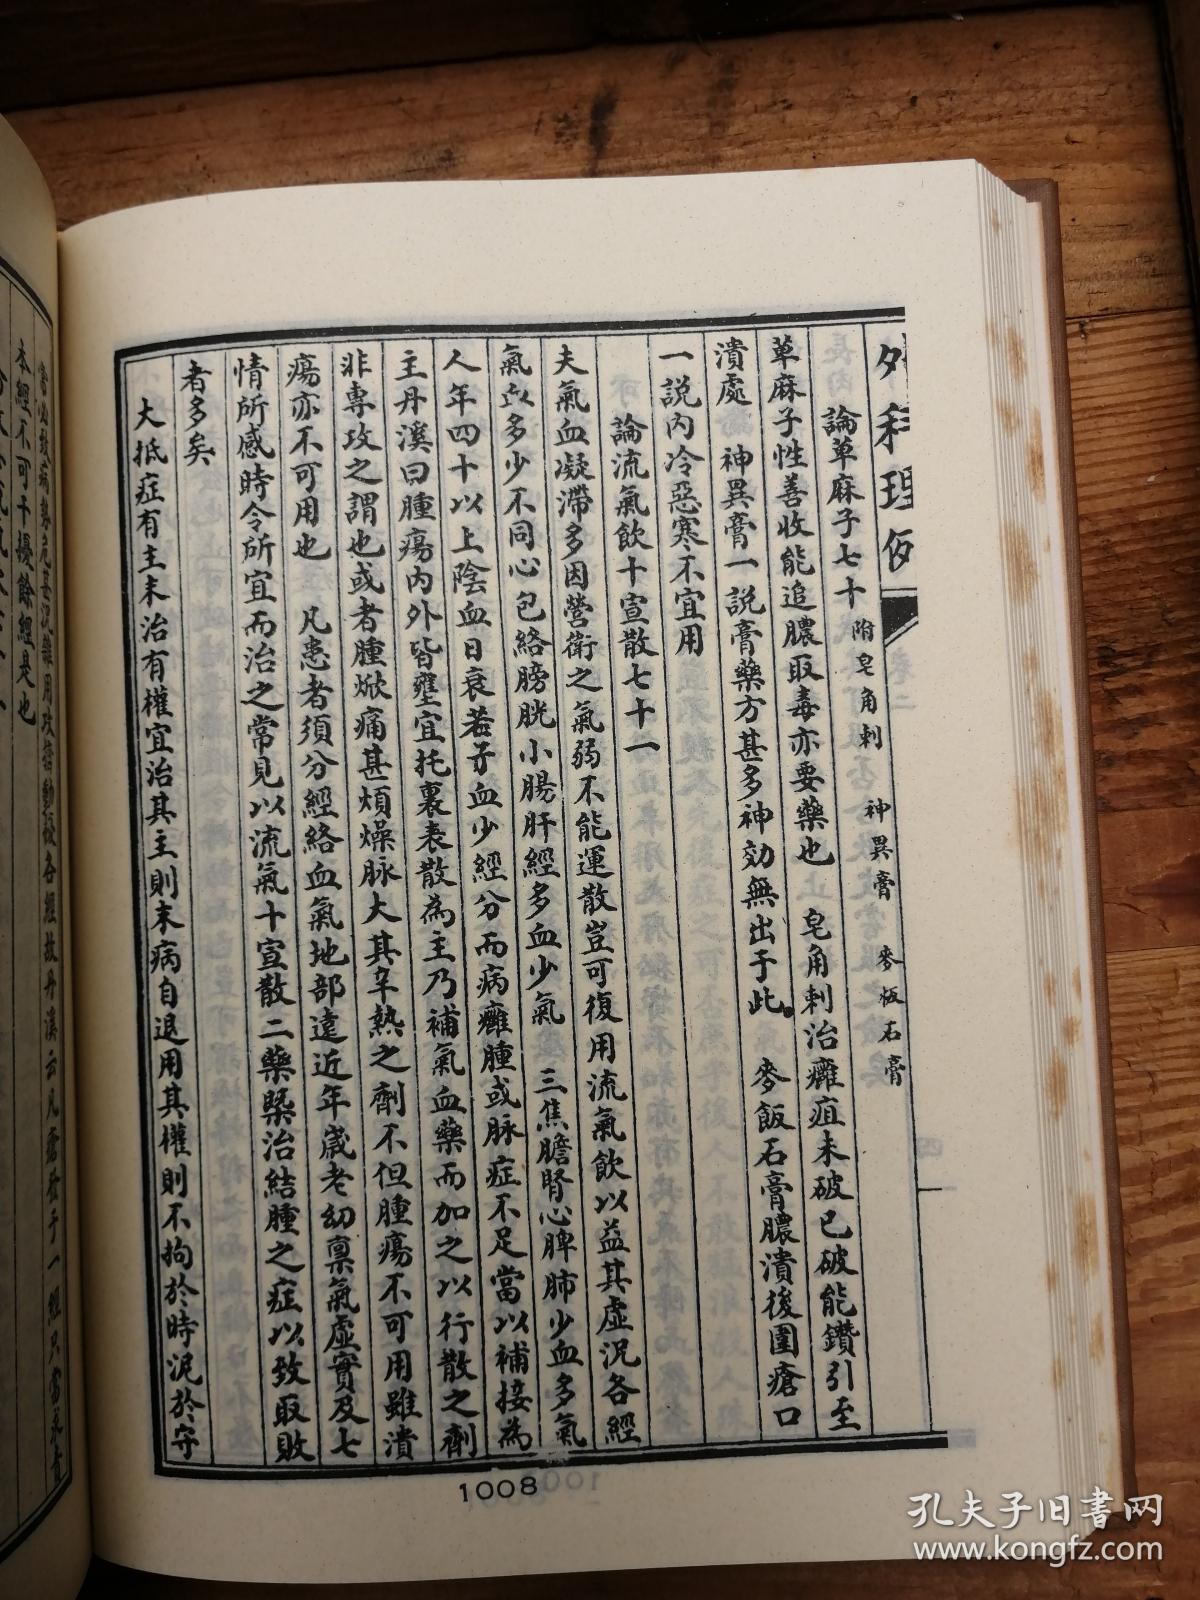 外科理例
論草麻子七十 附皂角刺 神異膏 麥飯石膏
草麻子性善收能追膿取毒亦要藥也 皂角刺治癰疽未破已破能鑽引至
潰處 神異膏一説膏藥方甚多神効無出于此 麥飯石膏膿潰後圍瘡口
一説内冷惡寒不宜用
論流氣飲十宣散七十一
夫氣血凝滯多因營衛之氣弱不能運散豈可復用流氣飲以益其虛況各經
氣血多少不同心包絡膀胱小腸肝經多血少氣 三焦膽腎心脾肺少血多氣
人年四十以上陰血日衰若于血少經分而病癰腫或脉症不足當以補接為
主丹溪曰腫瘍内外皆壅宜托裏表散為主乃補氣血藥而加之以行散之劑
非專攻之謂也或者腫焮痛甚煩燥脉大其辛熱之劑不但腫瘍不可用雖潰
瘍亦不可用也 凡患者須分經絡血氣地部遠近年歲老幼禀氣虛實及七
情所感時令所宜而治之常見以流氣十宣散二藥槩治結腫之症以致取敗
者多矣
大抵症有主末治有權宜治其主則末病自退用其權則不拘於時泥於守
1008
本經不可干擾餘經是也
孔夫子旧书网
www.kongfz.com